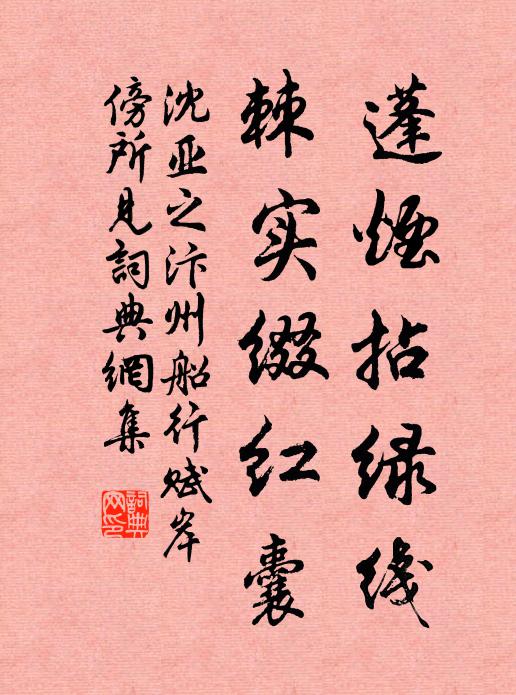 蓬煙拈绿线
棘实缀红囊
沈亚之汴州船行赋岸
傍所見詞典網集
詞典
网印